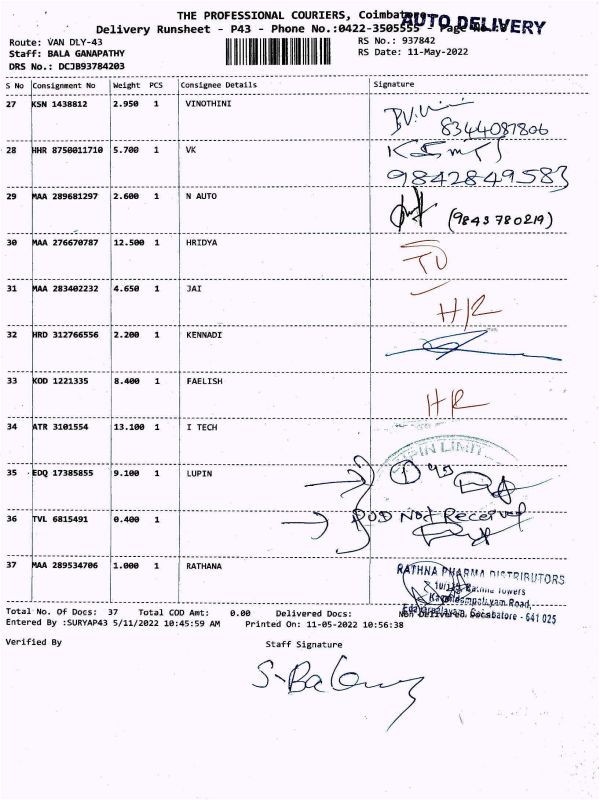 THE PROFESSIONAL COURIERS, Coimbatore
AUTO DELIVERY
Delivery Runsheet - P43 - Phone No.:0422-3505555 - Page No.
Route: VAN DLY-43 RS No.: 937842
Staff: BALA GANAPATHY RS Date: 11-May-2022
DRS No.: DCJB93784203
S No Consignment No Weight PCS Consignee Details Signature
27 KSN 1438812 2.950 1 VINOTHINI
8344087806
28 HHR 8750011710 5.700 1 VK
9842849583
29 MAA 289681297 2.600 1 N AUTO (9843780219)
30 MAA 276670787 12.500 1 HRIDYA
31 MAA 283402232 4.650 1 JAI HR
32 HRD 312766556 2.200 1 KENNADI
33 KOD 1221335 8.400 1 FAELISH HR
34 ATR 3101554 13.100 1 I TECH
LUPIN LIMIT
35 EDQ 17385855 9.100 1 LUPIN
36 TVL 6815491 0.400 1 POD Not Received
37 MAA 289534706 1.000 1 RATHANA
RATHNA PHARMA DISTRIBUTORS
Rathna Towers
Road,
Edayarpalayam, Coimbatore - 641 025
Total No. Of Docs: 37 Total COD Amt: 0.00 Delivered Docs: Non Delivered Docs
Entered By :SURYAP43 5/11/2022 10:45:59 AM Printed On: 11-05-2022 10:56:38
Verified By Staff Signature
S. Bala